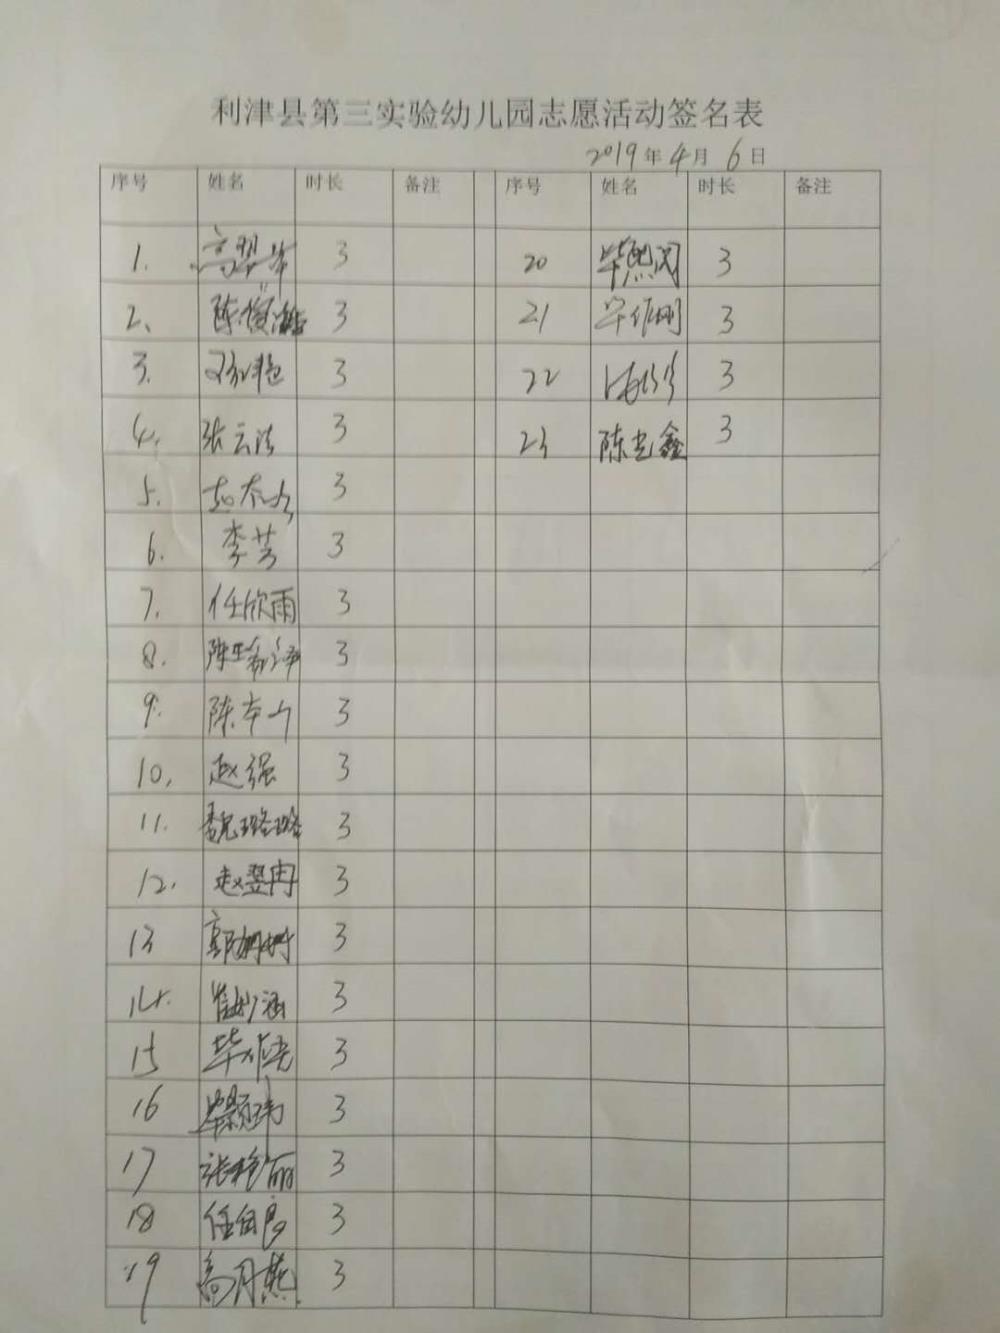 利津县第三实验幼儿园志愿活动签名表
2019年4月6日
序号 姓名 时长 备注 序号 姓名 时长 备注
1. 高翠华 3 20 毕熙闵 3
2、 陈俊 3 21 毕作刚 3
3. 3 22 3
4. 张云洁 3 23 陈光鑫 3
5. 3
6. 李芳 3
7. 任欣雨 3
8. 陈 3
9. 陈本山 3
10. 赵强 3
11. 魏璐璐 3
12. 赵翌冉 3
13 郭姗姗 3
14. 3
15 毕作亮 3
16 毕颢玮 3
17 张艳丽 3
18 任自良 3
19 高月燕 3